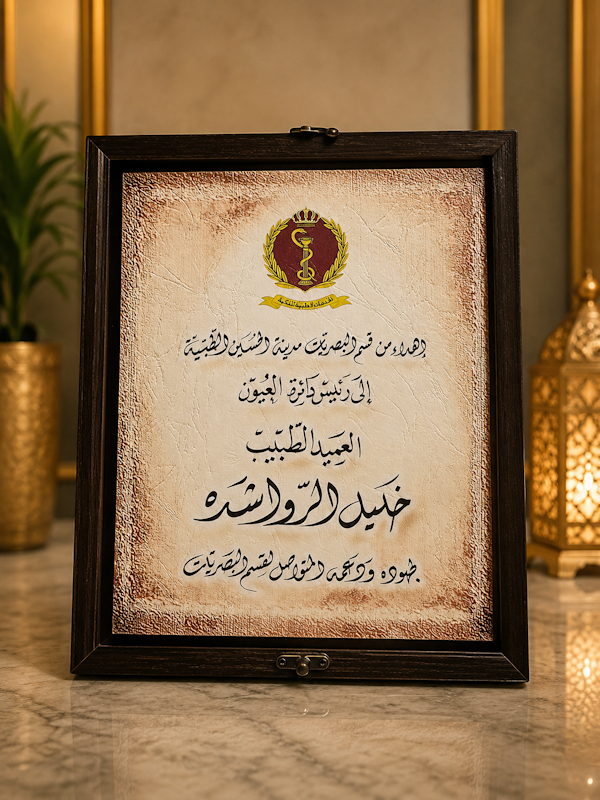 الخدمات الطبية الملكية
إهداء من قسم البصريات مدينة الحسين الطبية
إلى رئيس دائرة العيون
العميد الطبيب
خليل الرواشده
لجهوده ودعمه المتواصل لقسم البصريات